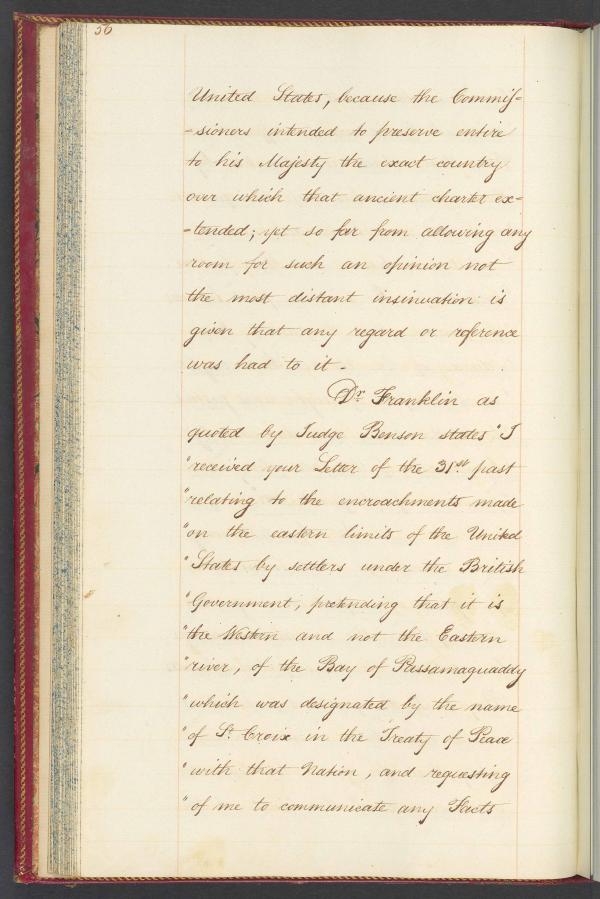 56
United States, because the Commiſ=
=sioners intended to preserve entire
to his Majesty the exact country
over which that ancient charter ex=
=tended; yet so far from allowing any
room for such an opinion not
the most distant insinuation is
given that any regard or reference
was had to it -
Dr. Franklin as
quoted by Judge Benson states "I
"received your Letter of the 31st. past
"relating to the encroachments made
"on the eastern limits of the United
"States by settlers under the British
"Government, pretending that it is
"the Western and not the Eastern
"river, of the Bay of Passamaquaddy
"which was designated by the name
"of St. Croix in the Treaty of Peace
"with that Nation, and requesting
"of me to communicate any Facts